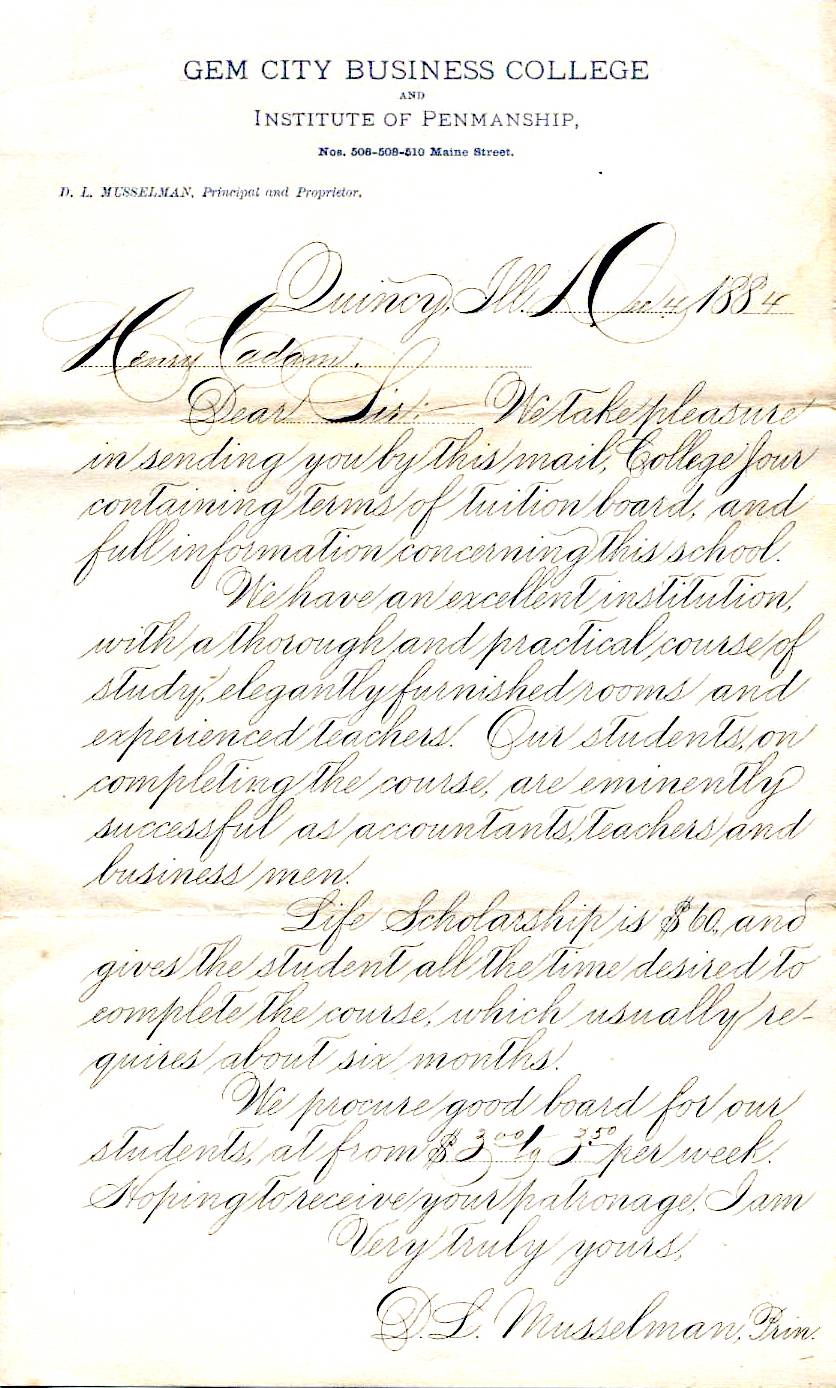 GEM CITY BUSINESS COLLEGE
AND
INSTITUTE OF PENMANSHIP,
Nos. 506-508-510 Maine Street.
D. L. MUSSELMAN, Principal and Proprietor.
Quincy, Ill. Dec 4 1884
Henry Cadam.
Dear Sir:— We take pleasure
in sending you by this mail, College Jour
containing terms of tuition board, and
full information concerning this school.
We have an excellent institution,
with a thorough and practical course of
study, elegantly furnished rooms and
experienced teachers. Our students, on
completing the course, are eminently
successful as accountants, teachers and
business men.
Life Scholarship is $60, and
gives the student all the time desired to
complete the course, which usually re-
quires about six months.
We procure good board for our
students, at from $3.00 to 3.50 per week.
Hoping to receive your patronage, I am
Very truly yours,
D. L. Musselman, Prin.